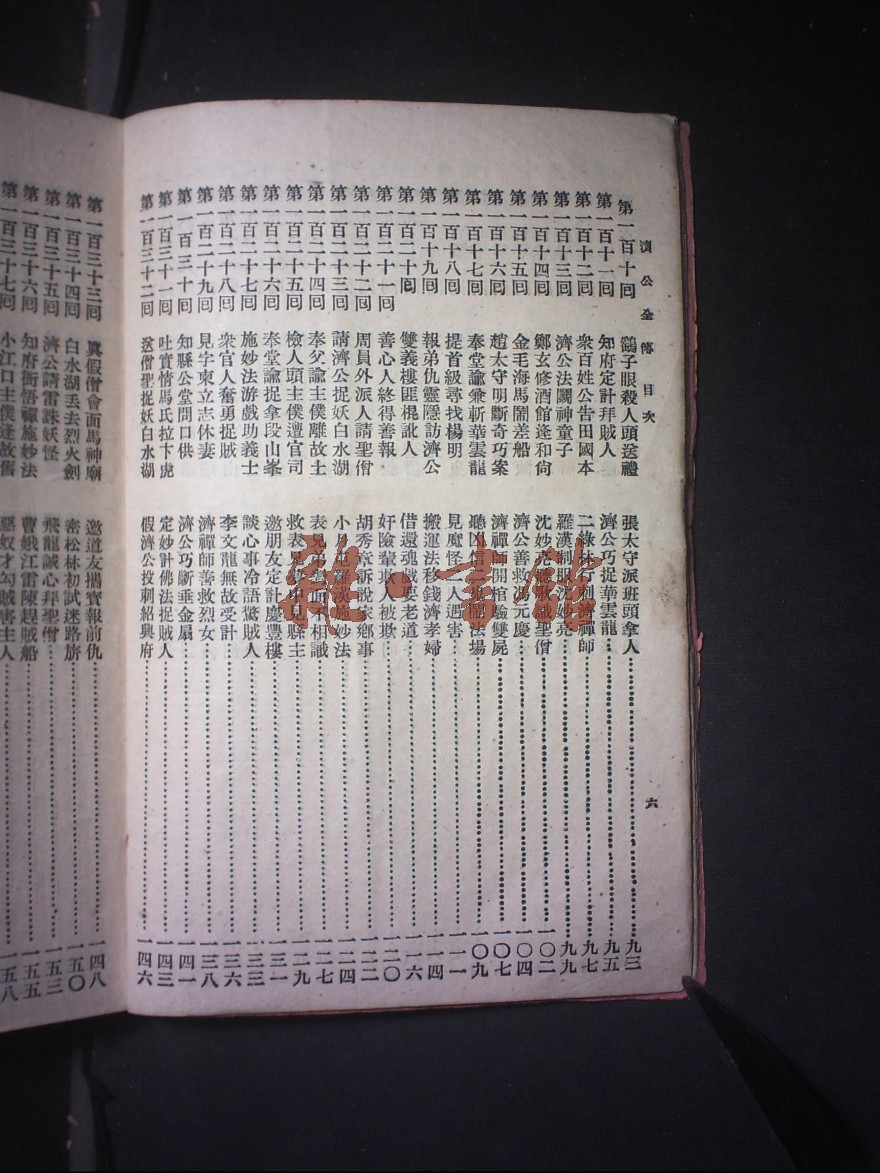 濟公全傳 目次
六
第一百十回 鷂子眼殺人頭送禮 張太守派班頭拿人 九三
第一百十一回 知府定計拜賊人 濟公巧捉華雲龍 九五
第一百十二回 衆百姓公告田國本 二綠林行刺濟禪師 九七
第一百十三回 濟公法鬭神童子 羅漢制服沈妙亮 九九
第一百十四回 鄭玄修酒館逢和尙 沈妙亮聽歌識聖僧 一〇二
第一百十五回 金毛海馬鬧差船 濟公善救馮元慶 一〇四
第一百十六回 趙太守明斷奇巧案 濟禪師開棺驗雙屍 一〇七
第一百十七回 奉堂諭兼斬華雲龍 聽凶信二鬧法場 一〇九
第一百十八回 提首級尋找楊明 見魔怪二人遇害 一一一
第一百十九回 報弟仇靈隱訪濟公 搬運法移錢濟孝婦 一一四
第一百二十回 雙義樓匪棍訛人 借還魂戲耍老道 一一六
第一百二十一回 善心人終得善報 奸險輩欺人被欺 一二〇
第一百二十二回 周員外派人請聖僧 胡秀章訴說家鄉事 一二二
第一百二十三回 請濟公捉妖白水湖 小月屯羅漢施妙法 一二四
第一百二十四回 奉父諭主僕離故土 表兄弟對面不相識 一二七
第一百二十五回 檢人頭主僕遭官司 救表兄堂中見縣主 一二九
第一百二十六回 奉堂諭捉拿段山峯 邀朋友定計慶豐樓 一三一
第一百二十七回 施妙法游戲助義士 談心事冷語驚賊人 一三三
第一百二十八回 衆官人奮勇捉賊 李文龍無故受計 一三六
第一百二十九回 見字柬立志休妻 濟禪師善救烈女 一三八
第一百三十回 知縣公堂問口供 濟公巧斷垂金扇 一四一
第一百三十一回 吐實情馬氏拉卞虎 定妙計佛法捉賊人 一四三
第一百三十二回 送僧聖捉妖白水湖 假濟公投刺紹興府 一四六
第一百三十三回 眞假僧會面馬神廟 邀道友攜寶報前仇 一四八
第一百三十四回 白水湖丢去烈火劍 密松林初試迷路旂 一五〇
第一百三十五回 濟公請雷誅妖怪 飛龍誠心拜聖僧 一五三
第一百三十六回 知府衙悟禪施妙法 曹娥江雷陳趕賊船 一五五
第一百三十七回 小江口主僕逢故舊 惡奴才勾賊害主人 一五八